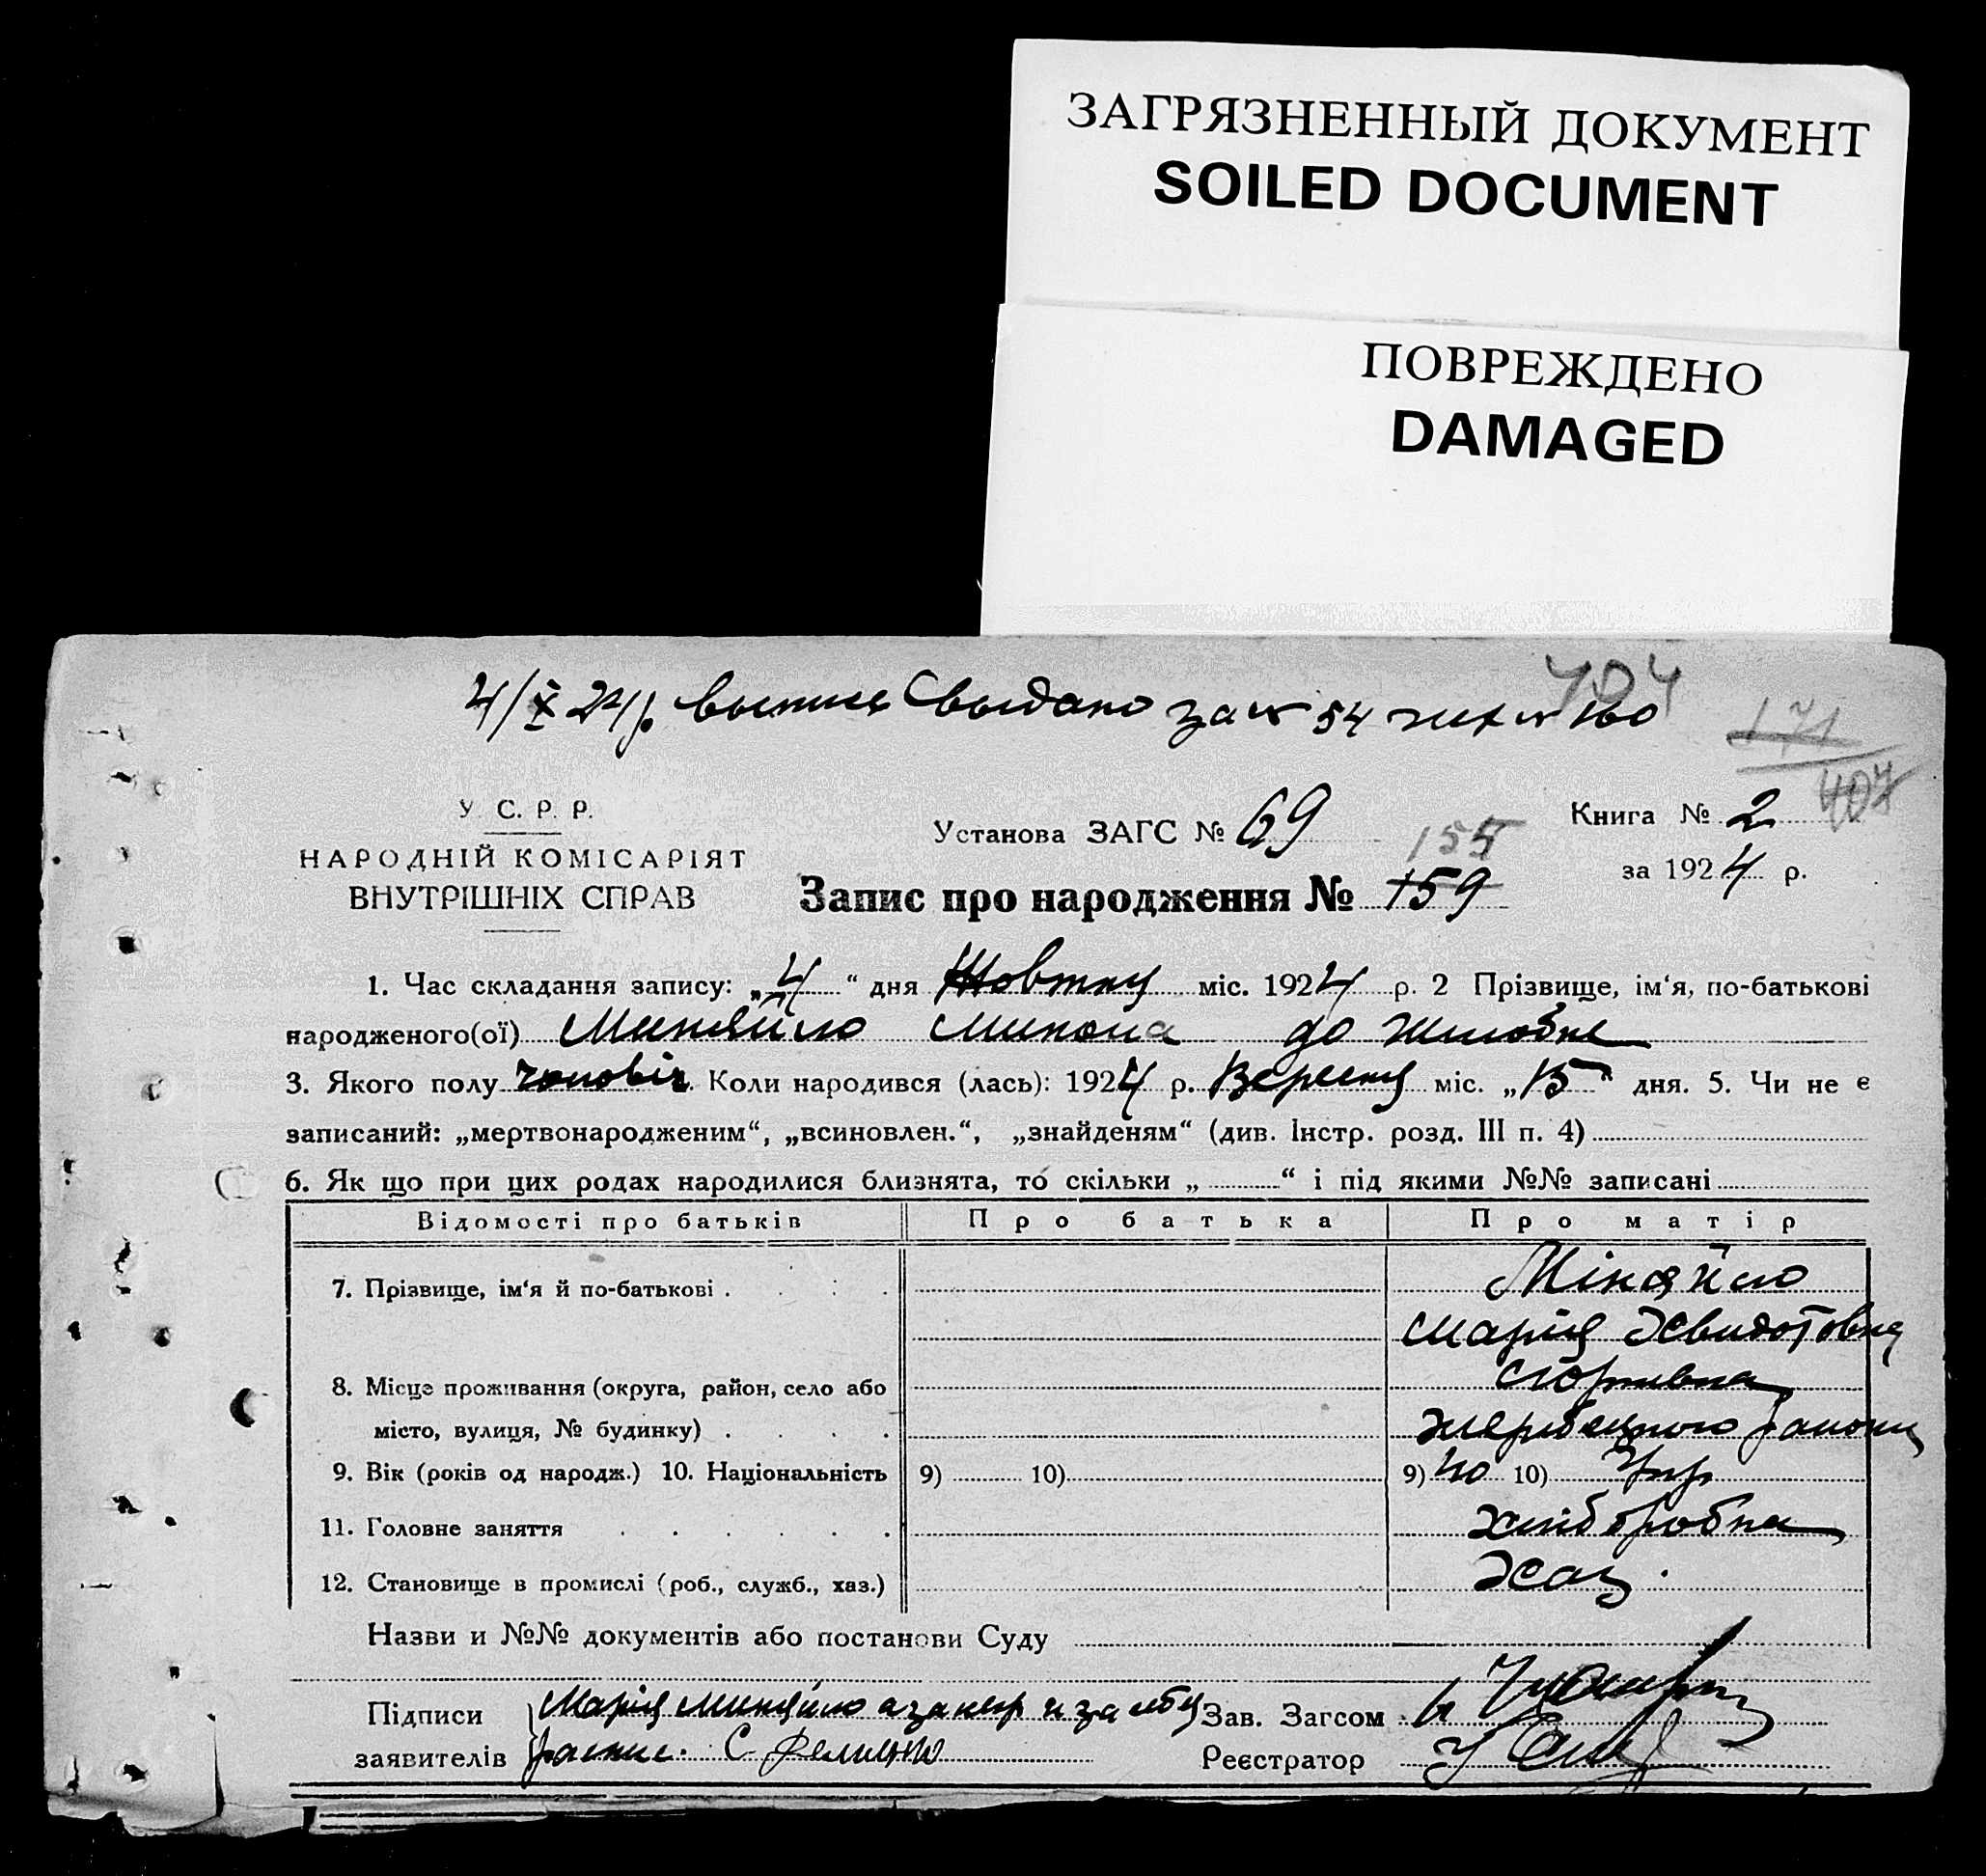 ЗАГРЯЗНЕННЫЙ ДОКУМЕНТ
SOILED DOCUMENT
ПОВРЕЖДЕНО
DAMAGED
4/X 24 р. выпись выдано за № 54 № 160
171
407
У. С. Р. Р.
НАРОДНІЙ КОМІСАРІЯТ
ВНУТРІШНІХ СПРАВ
Установа ЗАГС № 69
Книга № 2
за 1924 р.
155
Запис про народження № 159
1. Час складання запису: „4“ дня Жовтня міс. 1924 р. 2 Прізвище, ім‘я, по-батькові
народженого(ої) Миняйло Микола
3. Якого полу чоловіч. Коли народився (лась): 1924 р. Вересня міс. „15“ дня. 5. Чи не є
записаний: „мертвонародженим“, „всиновлен.“, „знайденям“ (див. Інстр. розд. III п. 4)
6. Як що при цих родах народилися близнята, то скільки „ “ і під якими №№ записані
Відомості про батьків Про батька Про матір
7. Прізвище, ім‘я й по-батькові . Міняйло
Марія
8. Місце проживання (округа, район, село або
місто, вулиця, № будинку) . Жеребецького району
9. Вік (років од народж.) 10. Національність 9) 10) 9) 40 10) Укр
11. Головне заняття хліборобка
12. Становище в промислі (роб., служб., хаз.) Хаз.
Назви и №№ документів або постанови Суду
Підписи Марія Миняйло а за неї Зав. Загсом
заявителів распис. С. Реєстратор